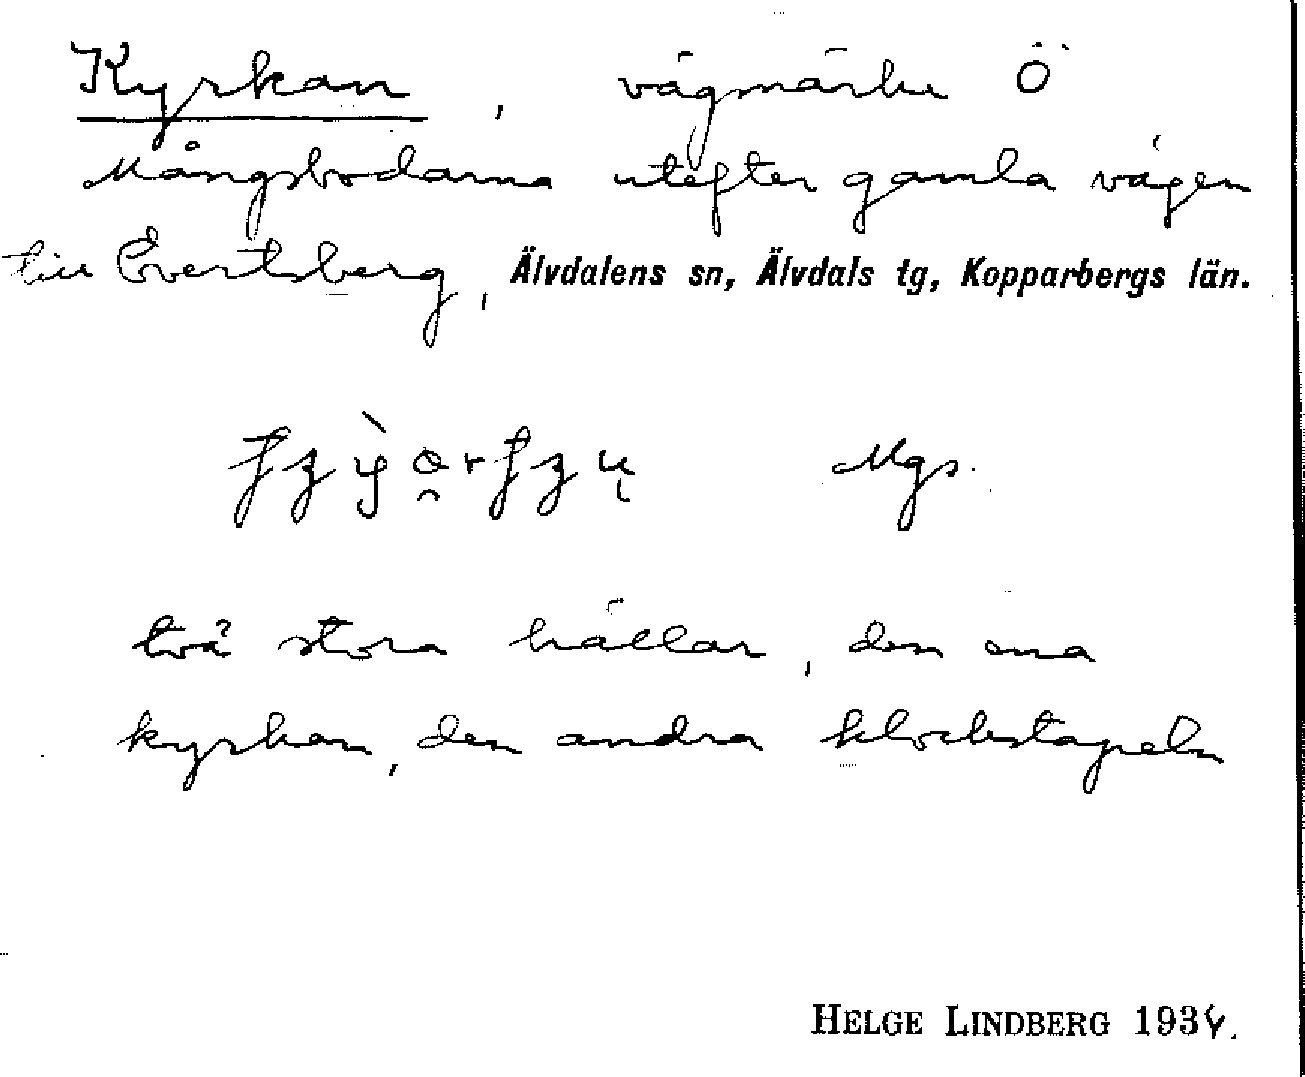 Kyrkan, vägmärke Ö
Mångsbodarna utefter gamla vägen
till Evertsberg, Älvdalens sn, Älvdals tg, Kopparbergs län.
Mgs.
två stora hällar, den ena
kyrkan, den andra klockstapeln
HELGE LINDBERG 1934.